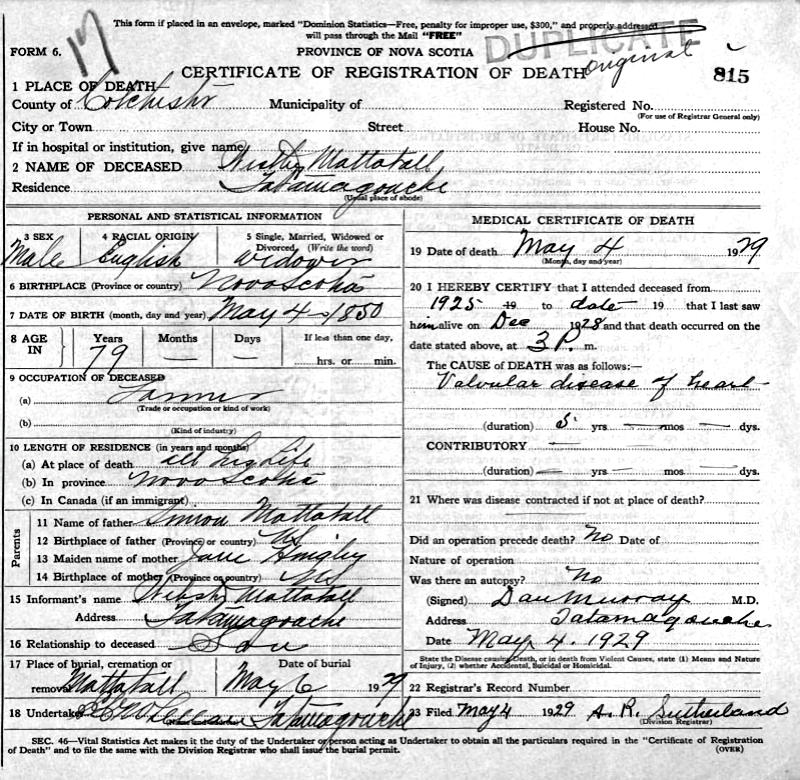 17
This form if placed in an envelope, marked "Dominion Statistics—Free, penalty for improper use, $300," and properly addressed
will pass through the Mail "FREE"
DUPLICATE
original
FORM 6.
PROVINCE OF NOVA SCOTIA
CERTIFICATE OF REGISTRATION OF DEATH
815
1 PLACE OF DEATH
County of Colchester Municipality of Registered No.
(For use of Registrar General only)
City or Town Street House No.
If in hospital or institution, give name
2 NAME OF DECEASED Mattatall
Residence Tatamagouche
(Usual place of abode)
PERSONAL AND STATISTICAL INFORMATION
3 SEX 4 RACIAL ORIGIN 5 Single, Married, Widowed or Divorced, (Write the word)
Male English widower
6 BIRTHPLACE (Province or country) Nova Scotia
7 DATE OF BIRTH (month, day and year) May 4 - 1850
8 AGE IN Years Months Days If less than one day,
79 hrs. or min.
9 OCCUPATION OF DECEASED
(a) Farmer
(Trade or occupation or kind of work)
(b)
(Kind of industry)
10 LENGTH OF RESIDENCE (in years and months)
(a) At place of death all his life
(b) In province Nova Scotia
(c) In Canada (if an immigrant)
Parents
11 Name of father Mattatall
12 Birthplace of father (Province or country) NS
13 Maiden name of mother Jane
14 Birthplace of mother (Province or country) NS
15 Informant's name Mattatall
Address Tatamagouche
16 Relationship to deceased Son
17 Place of burial, cremation or removal Date of burial
Mattatall May 6 1929
18 Undertaker Tatamagouche
MEDICAL CERTIFICATE OF DEATH
19 Date of death May 4 1929
(Month, day and year)
20 I HEREBY CERTIFY that I attended deceased from
1925 19 to date 19 that I last saw
him alive on Dec 1928 and that death occurred on
date stated above, at 3 P. m.
The CAUSE of DEATH was as follows:—
Valvular disease of heart
(duration) yrs mos dys.
CONTRIBUTORY
(duration) yrs mos dys.
21 Where was disease contracted if not at place of death?
Did an operation precede death? No Date of
Nature of operation
Was there an autopsy? No
(Signed) Dan Murray M.D.
Address Tatamagouche
Date May 4. 1929
State the Disease causing Death, or in death from Violent Causes, state (1) Means and Nature
of Injury, (2) whether Accidental, Suicidal or Homicidal.
22 Registrar's Record Number
23 Filed May 4 1929 A. R. Sutherland
(Division Registrar)
SEC. 46—Vital Statistics Act makes it the duty of the Undertaker or person acting as Undertaker to obtain all the particulars required in the "Certificate of Registration
of Death" and to file the same with the Division Registrar who shall issue the burial permit.
(OVER)